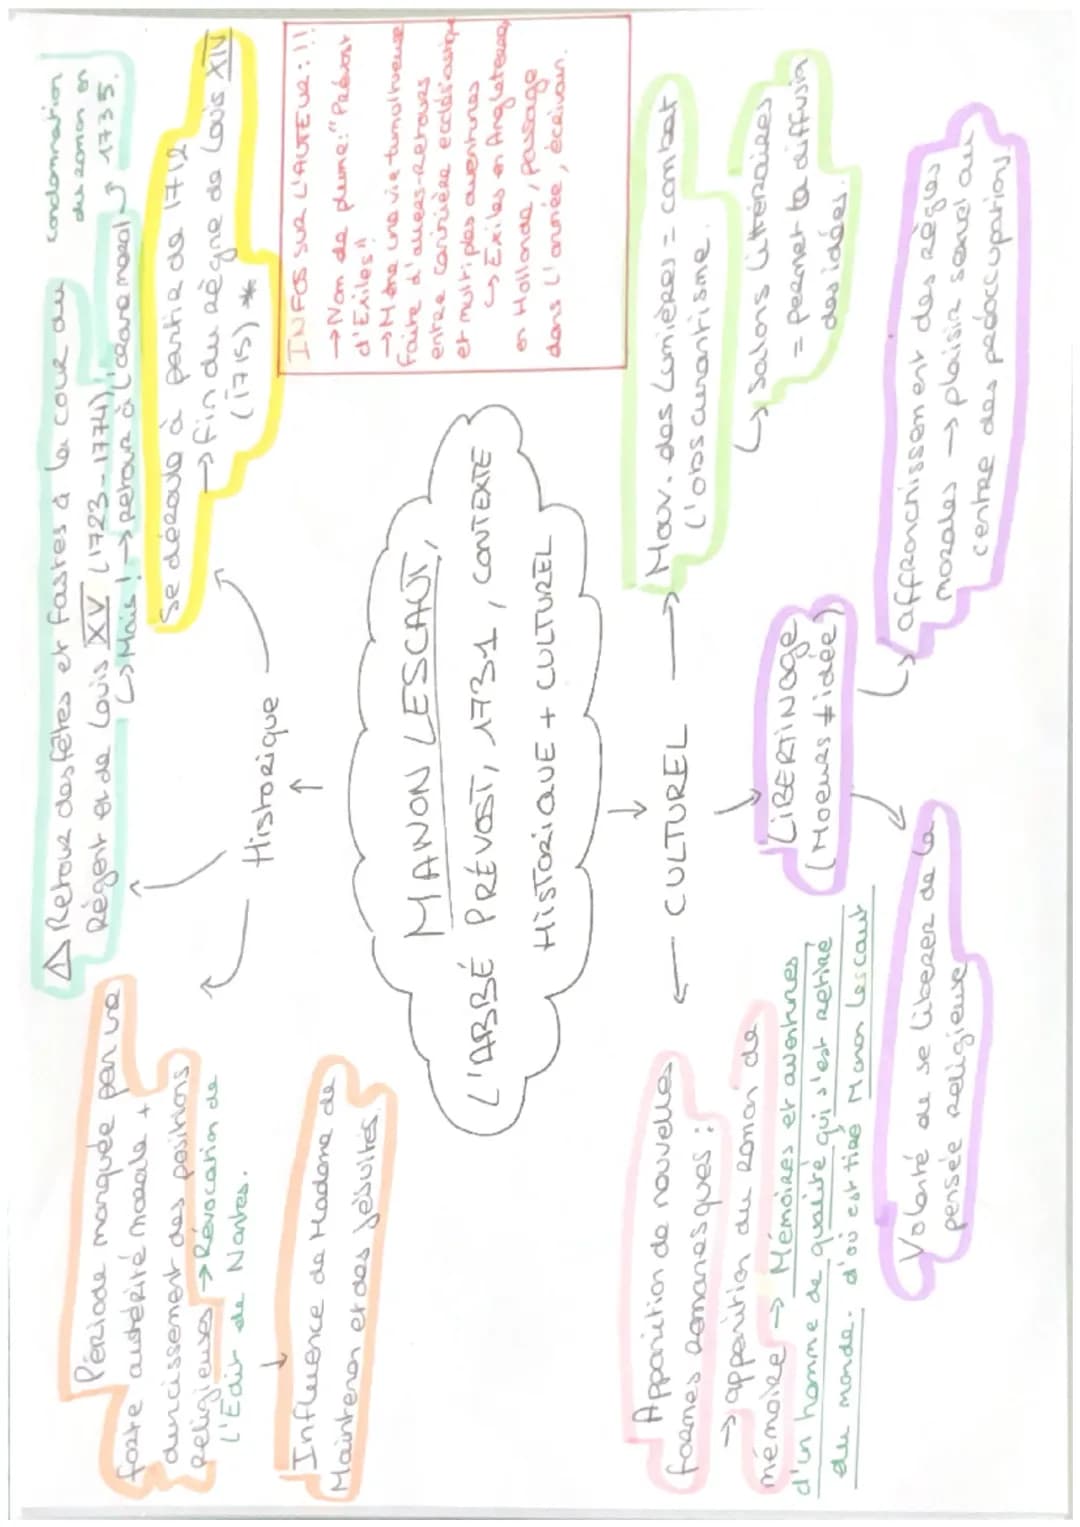 △ Retour des fêtes et fastes à la cour du
Régent et de Louis XV (1723-1774),
↳ Mais! → retour à l'ordre moral ↴
condamnation
du roman en
1735.
Période marquée par une
forte austérité morale +
durcissement des positions
religieuses → Révocation de
l'Edit de Nantes.
↓
Influence de Madame de
Maintenon et des jésuites.
Historique
Se déroule à partir de 1712
→ fin du règne de Louis XIV
(1715) *
INFOS SUR L'AUTEUR: !!
→ Nom de plume: "Prévost
d'Exiles"
→ Mène une vie tumultueuse
faite d'allers-retours
entre carrière ecclésiastique
et multiples aventures
↳ Exiles en Angleterre,
en Hollande, passage
dans l'armée, écrivain.
MANON LESCAUT,
L'ABBÉ PRÉVOST, 1731, CONTEXTE
HISTORIQUE + CULTUREL
← CULTUREL →
Apparition de nouvelles
formes romanesques :
→ apparition du roman de
mémoire → Mémoires et aventures
d'un homme de qualité qui s'est retiré
du monde. d'où est tiré Manon Lescaut
Mouv. des Lumières = combat
l'obscurantisme.
↳ Salons littéraires
= permet la diffusion
des idées.
LIBERTINAGE
(Moeurs ≠ idée)
Volonté de se liberer de la
pensée religieuse
↳ affranchissement des règles
morales → plaisir sensuel au
centre des préoccupation,